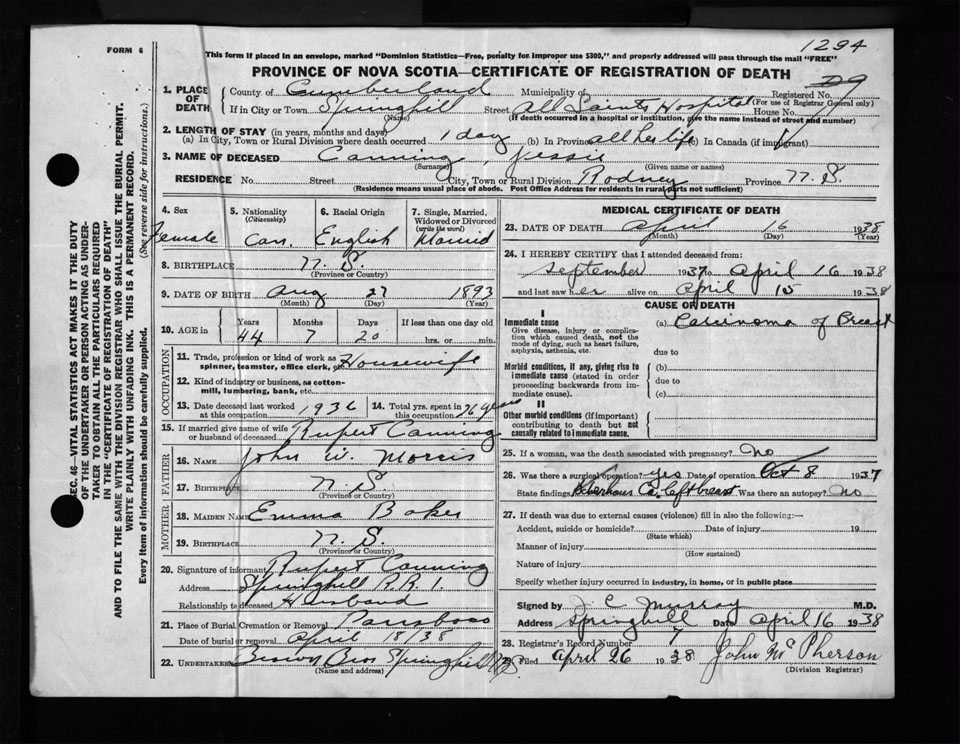 1294
FORM 6
This form if placed in an envelope, marked "Dominion Statistics—Free, penalty for improper use $300," and properly addressed will pass through the mail "FREE"
PROVINCE OF NOVA SCOTIA—CERTIFICATE OF REGISTRATION OF DEATH
1. PLACE OF DEATH County of Cumberland Municipality of Registered No.
(For use of Registrar General only)
If in City or Town Springhill Street All Saints Hospital House No.
(Name) (If death occurred in a hospital or institution, give the name instead of street and number)
2. LENGTH OF STAY (in years, months and days)
(a) In City, Town or Rural Division where death occurred 1 day (b) In Province all her life (c) In Canada (if immigrant)
3. NAME OF DECEASED Canning, Jessie
(Surname) (Given name or names)
RESIDENCE No. Street City, Town or Rural Division Rodney Province N. S.
(Residence means usual place of abode. Post Office Address for residents in rural parts not sufficient)
4. Sex Female
5. Nationality (Citizenship) Can.
6. Racial Origin English
7. Single, Married, Widowed or Divorced (write the word) Married
8. BIRTHPLACE N. S.
(Province or Country)
9. DATE OF BIRTH Aug 27 1893
(Month) (Day) (Year)
10. AGE in Years Months Days If less than one day old
44 7 20 hrs. or min.
OCCUPATION
11. Trade, profession or kind of work as spinner, teamster, office clerk, etc. Housewife
12. Kind of industry or business, as cotton-mill, lumbering, bank, etc.
13. Date deceased last worked at this occupation 1936
14. Total yrs. spent in this occupation 26 years
15. If married give name of wife or husband of deceased Rupert Canning
FATHER
16. NAME John W. Morris
17. BIRTHPLACE N. S.
(Province or Country)
MOTHER
18. MAIDEN NAME Emma Baker
19. BIRTHPLACE N. S.
(Province or Country)
20. Signature of informant Rupert Canning
Address Springhill R.R 1.
Relationship to deceased Husband
21. Place of Burial Cremation or Removal Parrsboro
Date of burial or removal April 18/38
22. UNDERTAKER Brown Bros Springhill N.S.
(Name and address)
MEDICAL CERTIFICATE OF DEATH
23. DATE OF DEATH April 16 1938
(Month) (Day) (Year)
24. I HEREBY CERTIFY that I attended deceased from:
September 1937 to April 16 1938
and last saw her alive on April 15 1938
CAUSE OF DEATH
I
Immediate cause (a) Carcinoma of Breast
Give disease, injury or complication which caused death, not the mode of dying, such as heart failure, asphyxia, asthenia, etc.
due to
Morbid conditions, if any, giving rise to immediate cause (stated in order proceeding backwards from immediate cause). (b)
due to
(c)
II
Other morbid conditions (if important) contributing to death but not causally related to immediate cause.
25. If a woman, was the death associated with pregnancy? No
26. Was there a surgical operation? yes Date of operation Oct 8 1937
State findings Ca. Left breast Was there an autopsy? No
27. If death was due to external causes (violence) fill in also the following:—
Accident, suicide or homicide? Date of injury 19
(State which)
Manner of injury
(How sustained)
Nature of injury
Specify whether injury occurred in industry, in home, or in public place
Signed by J. C. Murray M.D.
Address Springhill Date April 16 1938
28. Registrar's Record Number 7
29. Filed April 26 1938 John McPherson
(Division Registrar)
SEC. 46—VITAL STATISTICS ACT MAKES IT THE DUTY
OF THE UNDERTAKER OR PERSON ACTING AS UNDER-
TAKER TO OBTAIN ALL THE PARTICULARS REQUIRED
IN THE "CERTIFICATE OF REGISTRATION OF DEATH"
AND TO FILE THE SAME WITH THE DIVISION REGISTRAR WHO SHALL ISSUE THE BURIAL PERMIT.
WRITE PLAINLY WITH UNFADING INK. THIS IS A PERMANENT RECORD.
Every item of information should be carefully supplied. (See reverse side for instructions.)